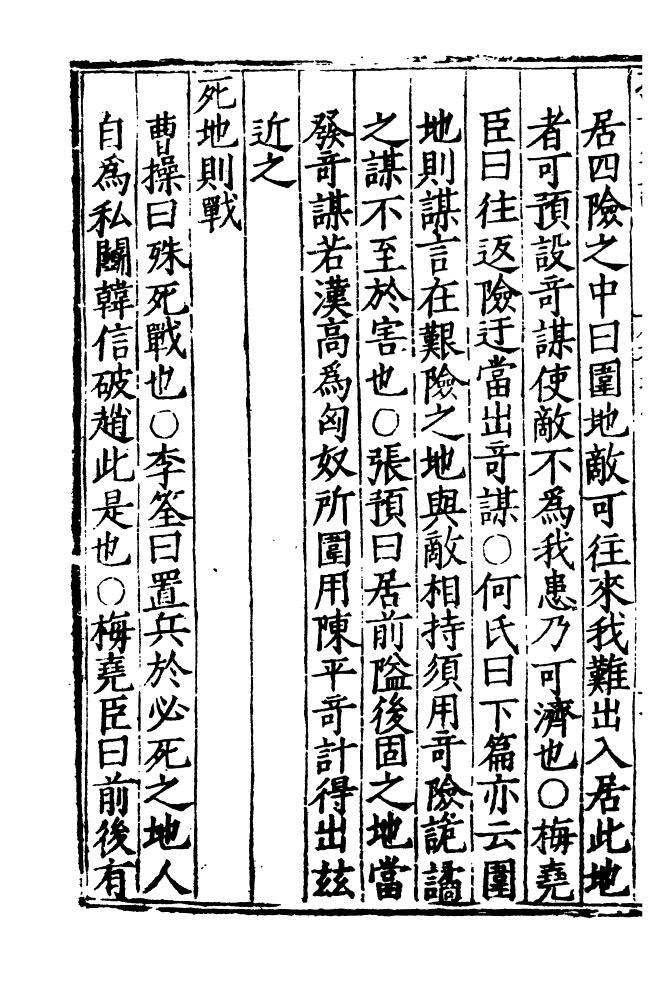 居四險之中曰圍地敵可往來我難出入居此地
者可預設竒謀使敵不爲我患乃可濟也○梅堯
臣曰往返險迂當出竒謀○何氏曰下篇亦云圍
地則謀言在艱險之地與敵相持須用竒險詭譎
之謀不至於害也○張預曰居前隘後固之地當
發竒謀若漢高爲匈奴所圍用陳平竒計得出玆
近之
死地則戰
曹操曰殊死戰也○李筌曰置兵於必死之地人
自爲私鬭韓信破趙此是也○梅堯臣曰前後有